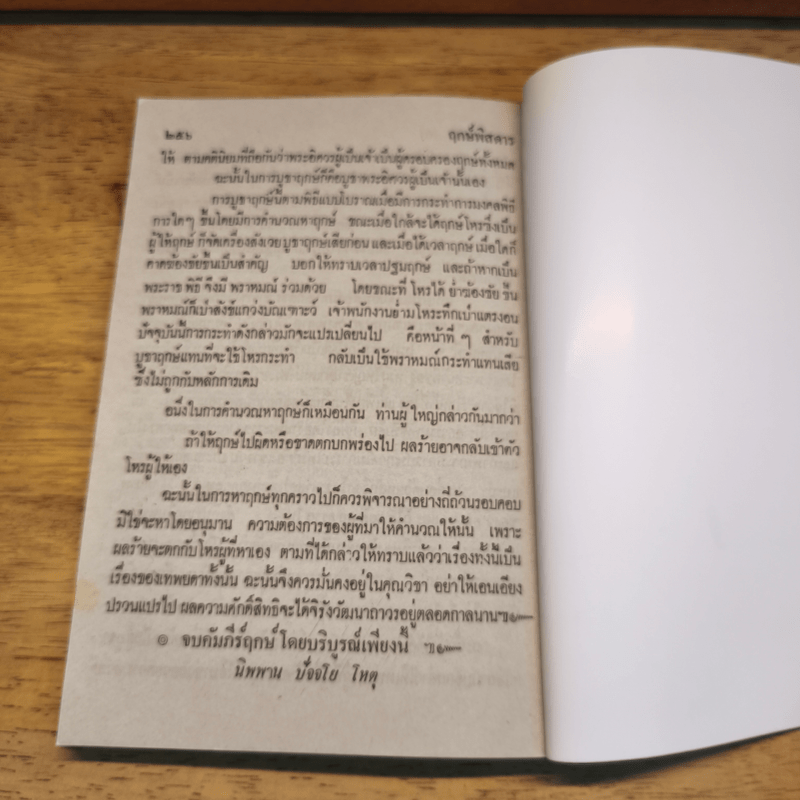 ๒๕๖ ฤกษ์พิสดาร
ให้ ตามคตินิยมที่ถือกันว่าพระอิศวรผู้เป็นเจ้าเป็นผู้ครอบครองฤกษ์ทั้งหมด
ฉะนั้นในการบูชาฤกษ์ก็คือบูชาพระอิศวรผู้เป็นเจ้านั้นเอง
การบูชาฤกษ์นี้ตามพิธีแบบโบราณเมื่อมีการกระทำการมงคลพิธี
การใดๆ ขึ้นโดยมีการคำนวณหาฤกษ์ ขณะเมื่อใกล้จะได้ฤกษ์โหรซึ่งเป็น
ผู้ให้ฤกษ์ ก็จัดเครื่องสังเวย บูชาฤกษ์เสียก่อน และเมื่อได้เวลาฤกษ์ เมื่อใดก็
ฆาตฆ้องชัยขึ้นเป็นสำคัญ บอกให้ทราบเวลาปฐมฤกษ์ และถ้าหากเป็น
พระราช พิธี จึงมี พราหมณ์ ร่วมด้วย โดยขณะที่ โหรได้ ย่ำฆ้องชัย ขึ้น
พราหมณ์ก็เป่าสังข์แกว่งบัณเฑาะว์ เจ้าพนักงานย่ำมโหระทึกเป่าแตรงอน
ปัจจุบันนี้การกระทำดังกล่าวมักจะแปรเปลี่ยนไป คือหน้าที่ ๆ สำหรับ
บูชาฤกษ์แทนที่จะใช้โหรกระทำ กลับเป็นใช้พราหมณ์กระทำแทนเสีย
ซึ่งไม่ถูกกับหลักการเดิม
อนึ่งในการคำนวณหาฤกษ์ก็เหมือนกัน ท่านผู้ใหญ่กล่าวกันมากว่า
ถ้าให้ฤกษ์ไปผิดหรือขาดตกบกพร่องไป ผลร้ายอาจกลับเข้าตัว
โหรผู้ให้เอง
ฉะนั้นในการหาฤกษ์ทุกคราวไปก็ควรพิจารณาอย่างถี่ถ้วนรอบคอบ
มิใช่จะหาโดยอนุมาน ความต้องการของผู้ที่มาให้คำนวณให้นั้น เพราะ
ผลร้ายจะตกกับโหรผู้ที่หาเอง ตามที่ได้กล่าวให้ทราบแล้วว่าเรื่องทั้งนี้เป็น
เรื่องของเทพยดาทั้งนั้น ฉะนั้นจึงควรมั่นคงอยู่ในคุณวิชา อย่าให้เอนเอียง
ปรวนแปรไป ผลความศักดิ์สิทธิจะได้จิรังวัฒนาถาวรอยู่ตลอดกาลนานฯ๛
๏ จบคัมภีร์ฤกษ์ โดยบริบูรณ์เพียงนี้ ฯ๛
นิพพาน ปัจจโย โหตุ